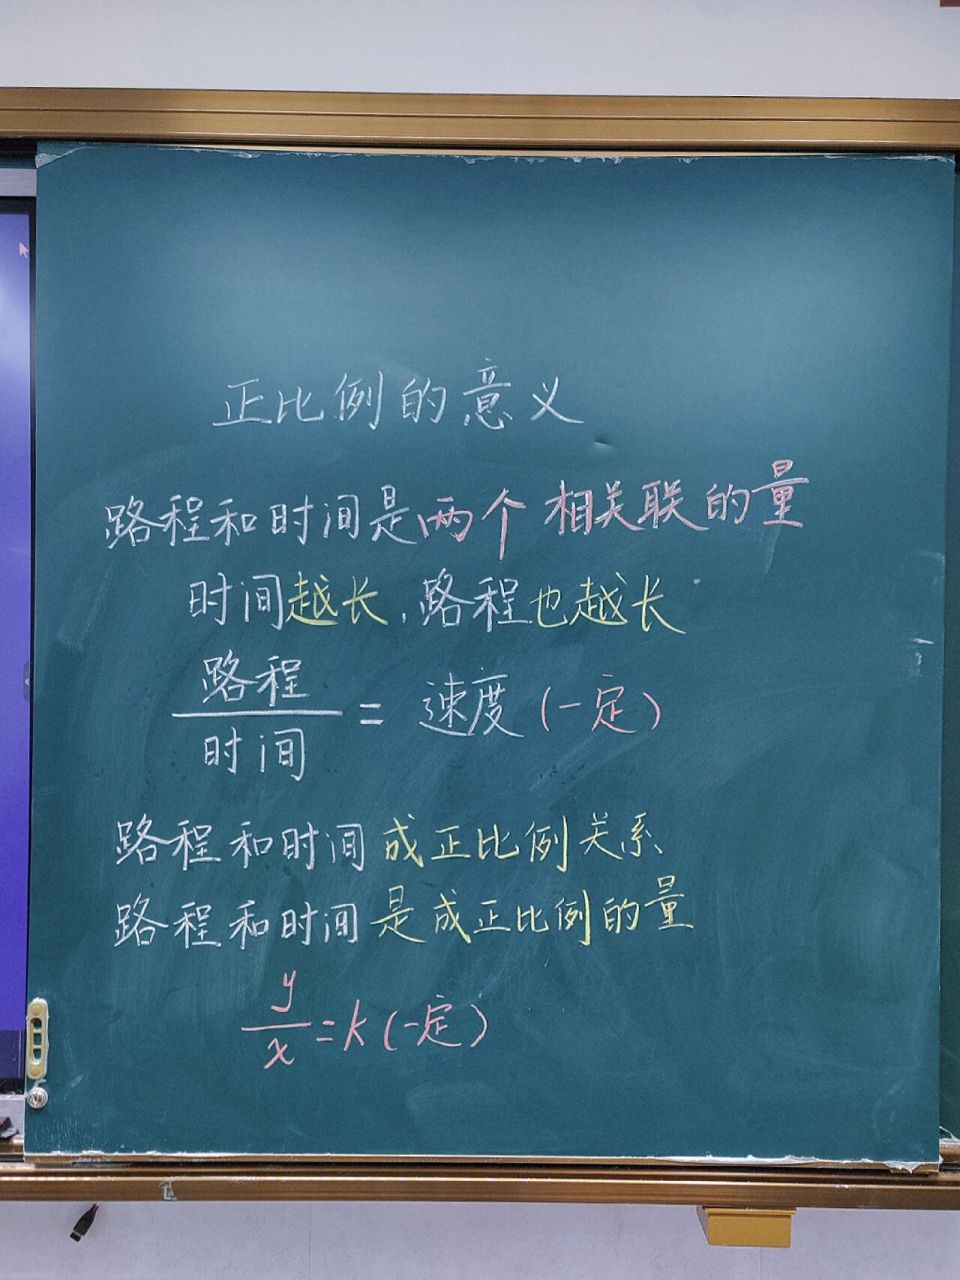 正比例的意义
路程和时间是两个相关联的量
时间越长,路程也越长
路程
时间 = 速度(一定)
路程和时间成正比例关系
路程和时间是成正比例的量
y
x =k(一定)